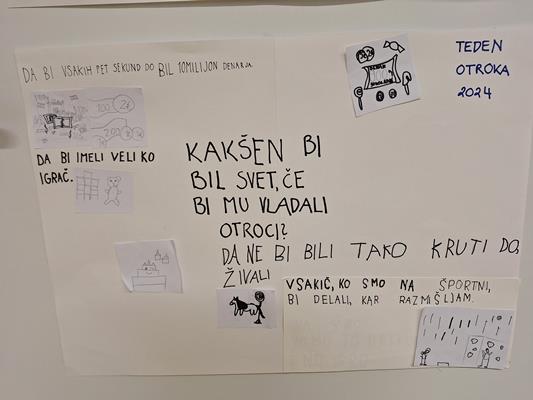 DA BI VSAKIH PET SEKUND DOBIL 10MILIJON DENARJA.
TEDEN
OTROKA
2024
DA BI IMELI VELIKO
IGRAČ.
KAKŠEN BI
BIL SVET, ČE
BI MU VLADALI
OTROCI?
DA NE BI BILI TAKO KRUTI DO,
ŽIVALI
VSAKIČ, KO SMO NA ŠPORTNI,
BI DELALI, KAR RAZMIŠLJAM.